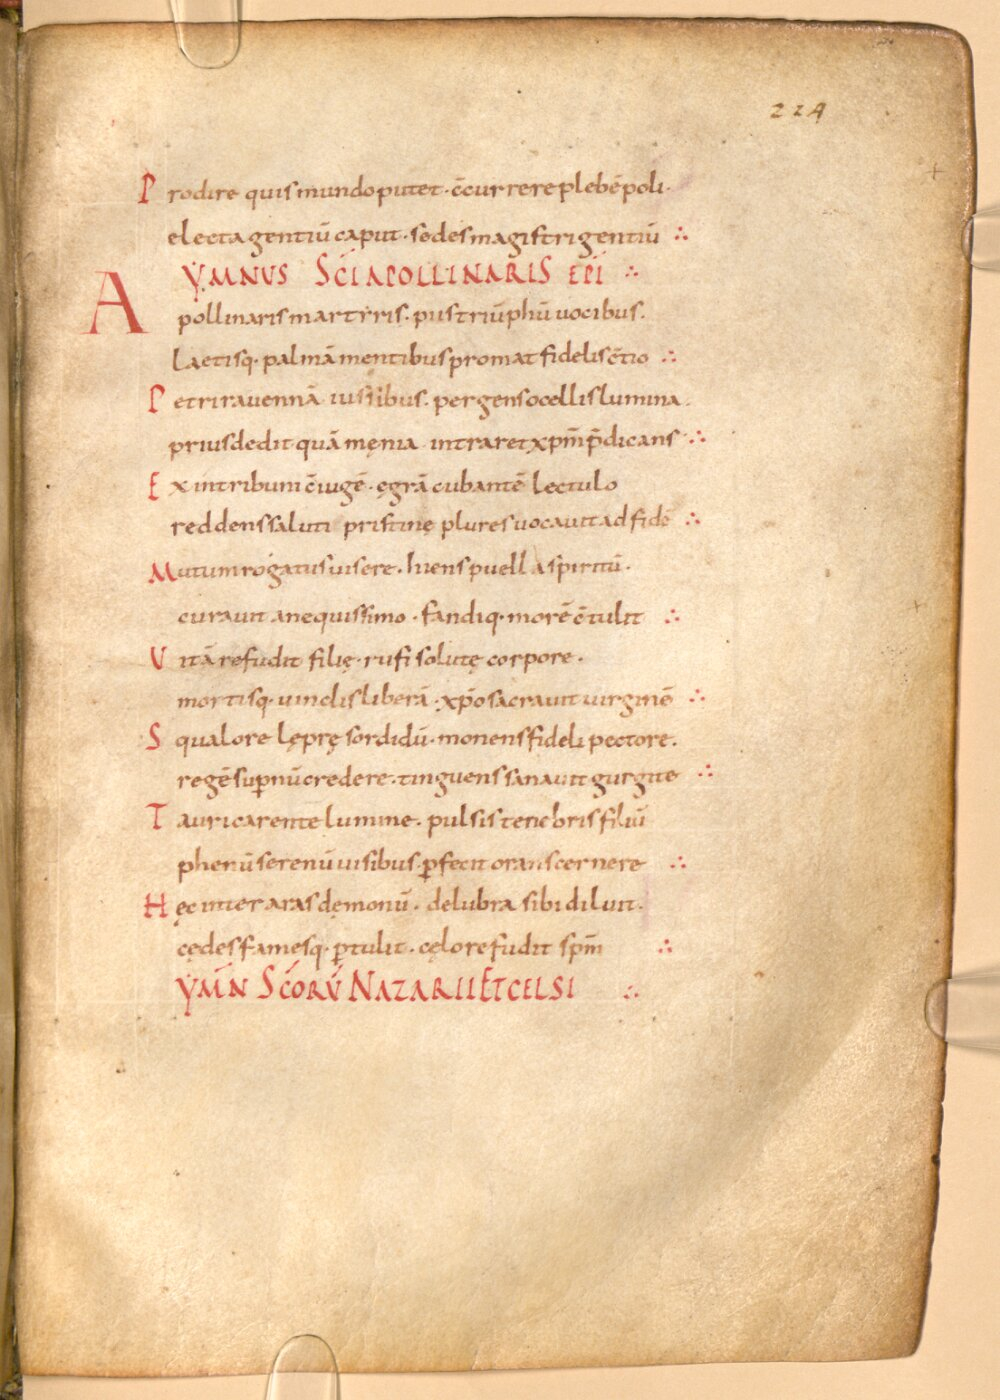 224
Prodire quis mundo putet · c̄currere plebē poli ·
electa gentiū caput · sedes magistri gentiū ∴
YMNUS SCĪ APOLLINARIS EPĪ ∴
Apollinaris martyris · pus triūphū uocibus ·
Laetisq· palmā mentibus promat fidelis c̄tio ∴
Petri rauennā iussibus · pergens ocellis lumina ·
prius dedit quā męnia intraret xpm̄ p̄dicans ∴
Ex in tribuni c̄iugē · ęgrā cubantē Lectulo
reddens saluti pristinę plures uocauit ad fidē ∴
Mutum rogatus uisere · luens puella spiritū ·
curauit a nequissimo · fandiq· morē c̄tulit ∴
Vitā refudit filię · rufi solutę corpore ·
mortisq· uinclis liberā · xp̄o sacrauit uirginē ∴
Squalore lęprę sordidū · monens fideli pectore ·
regē sup̄nū credere · tinguens sanauit gurgite ∴
Tauri carentē lumine · pulsis tenebris filiū
phenū serenū uisibus · ꝑfecit orans cernere ∴
Hęc inter aras dęmonū · delubra sibi diluit ·
cędes famesq· ꝑtulit · cęlo refudit spm̄ ∴
YMN̄ SC̄ORŪ NAZARII ET CELSI ∴